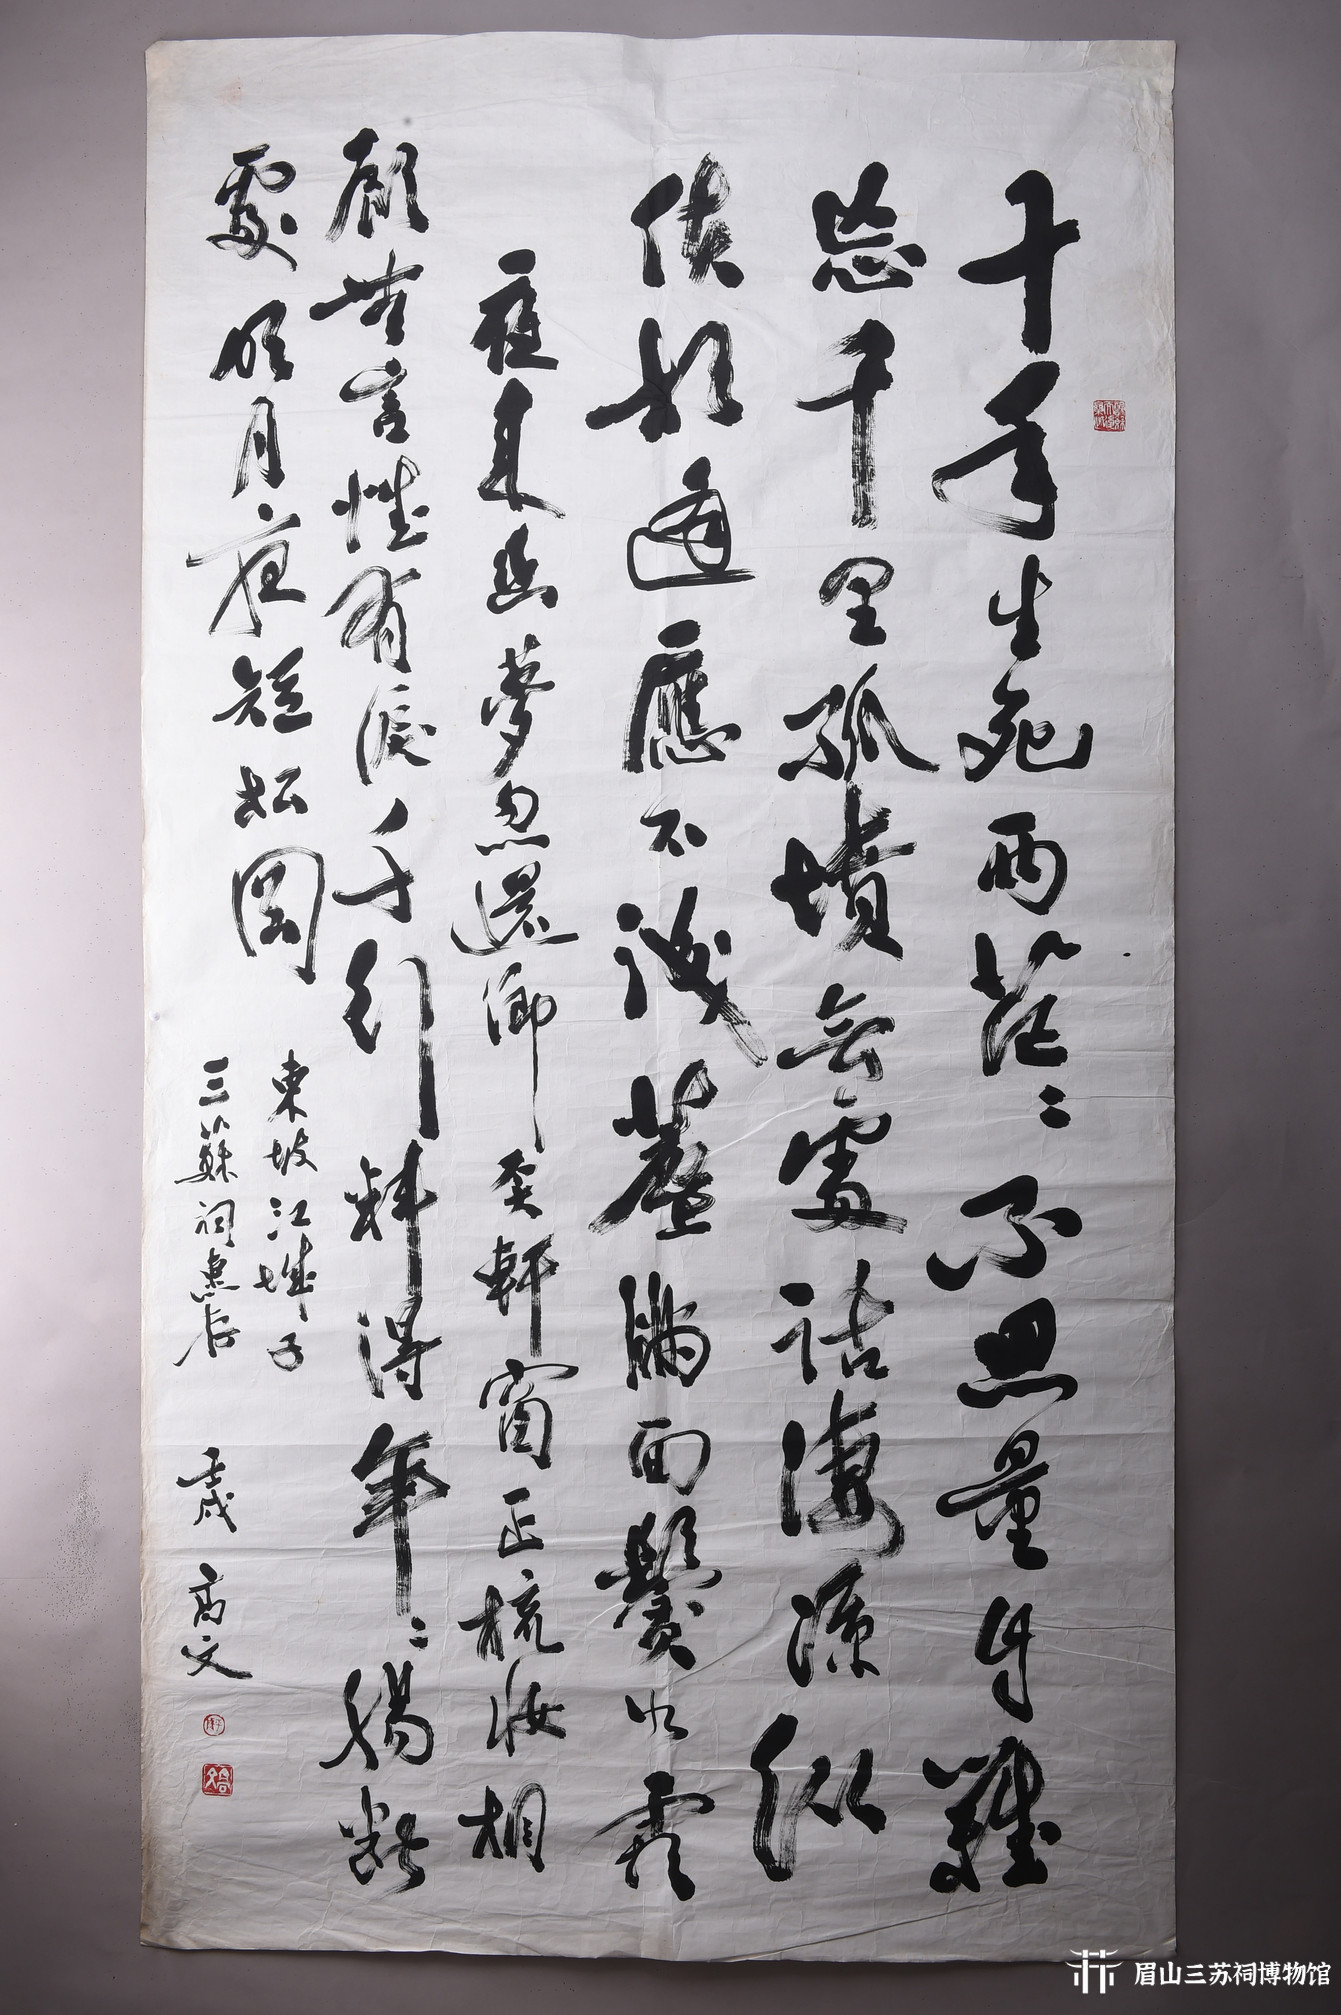 十年生死兩茫〻不思量自難
忘千里孤墳無處話淒涼纵
使相逢應不識塵滿面鬢如霜
夜來幽夢忽還鄉軒窗正梳妝相
顧無言惟有淚千行料得年〻腸斷
處明月夜短松岡
東坡江城子
三蘇祠惠存
壬戌 高文
眉山三苏祠博物馆